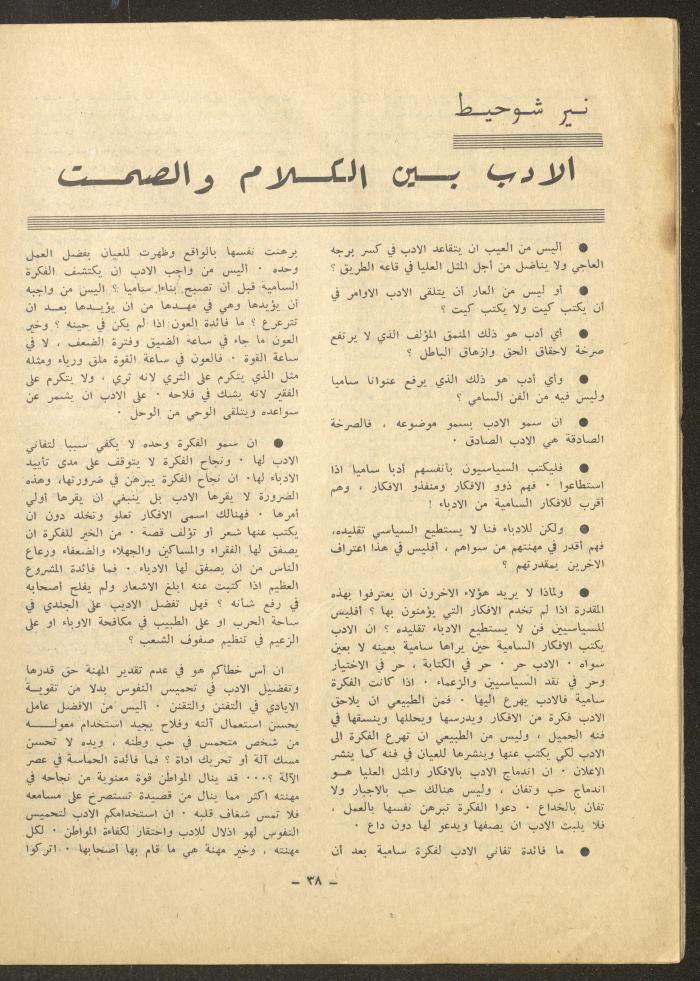 نـير شوحيـط
الادب بـين الكـلام والصمـت
● أليس من العيب ان يتقاعد الادب في كسر برجه
العاجي ولا يناضل من أجل المثل العليا في قاعة الطريق ؟
● أو ليس من العار أن يتلقى الادب الاوامر في
أن يكتب كيت ولا يكتب كيت ؟
● أي أدب هو ذلك المنمق المؤلف الذي لا يرتفع
صرخة لاحقاق الحق وازهاق الباطل ؟
● وأي أدب هو ذلك الذي يرفع عنوانا ساميا
وليس فيه من الفن السامي ؟
● ان سمو الادب بسمو موضوعه ، فالصرخة
الصادقة هي الادب الصادق ٠
● فليكتب السياسيون بأنفسهم أدبا ساميا اذا
استطاعوا ٠ فهم ذوو الافكار ومنفذو الافكار ، وهم
أقرب للافكار السامية من الادباء !
● ولكن للادباء فنا لا يستطيع السياسي تقليده،
فهم أقدر في مهنتهم من سواهم ، أفليس في هذا اعتراف
الاخرين بمقدرتهم ؟
● ولماذا لا يريد هؤلاء الاخرون ان يعترفوا بهذه
المقدرة اذا لم تخدم الافكار التي يؤمنون بها ؟ أفليس
للسياسيين فن لا يستطيع الادباء تقليده ؟ ان الادب
يكتب الافكار السامية حين يراها سامية بعينه لا بعين
سواه ٠ الادب حر ٠ حر في الكتابة ، حر في الاختيار
وحر في نقد السياسيين والزعماء ٠ اذا كانت الفكرة
سامية فالادب يهرع اليها ٠ فمن الطبيعي ان يلاحق
الادب فكرة من الافكار ويدرسها ويحللها وينسقها في
فنه الجميل ، وليس من الطبيعي ان تهرع الفكرة الى
الادب لكي يكتب عنها وينشرها للعيان في فنه كما ينشر
الاعلان ٠ ان اندماج الادب بالافكار والمثل العليا هـو
اندماج حب وتفان ، وليس هنالك حب بالاجبار ولا
تفان بالخداع ٠ دعوا الفكرة تبرهن نفسها بالعمل ،
فلا يلبث الادب ان يصفها ويدعو لها دون داع ٠
● ما فائدة تفاني الادب لفكرة سامية بعد أن
برهنت نفسها بالواقع وظهرت للعيان بفضل العمل
وحده ٠ أليس من واجب الادب ان يكتشف الفكرة
السامية قبل أن تصبح بناءا ساميا ؟ اليس من واجبه
أن يؤيدها وهي في مهدها من ان يؤيدها بعد ان
تترعرع ؟ ما فائدة العون اذا لم يكن في حينه ؟ وخير
العون ما جاء في ساعة الضيق وفترة الضعف ، لا في
ساعة القوة ٠ فالعون في ساعة القوة ملق ورياء ومثله
مثل الذي يتكرم على الثري لانه ثري ، ولا يتكرم على
الفقير لانه يشك في فلاحه ٠ على الادب ان يشمر عن
سواعده ويتلقى الوحي من الوحل ٠
● ان سمو الفكرة وحده لا يكفي سببا لتفاني
الادب لها ٠ ونجاح الفكرة لا يتوقف على مدى تأييد
الادباء لها٠ ان نجاح الفكرة يبرهن في ضرورتها، وهذه
الضرورة لا يقرها الادب بل ينبغي ان يقرها أولي
أمرها ٠ فهنالك اسمى الافكار تعلو وتخلد دون ان
يكتب عنها شعر أو تؤلف قصة ٠ من الخير للفكرة ان
يصفق لها الفقراء والمساكين والجهلاء والضعفاء ورعاع
الناس من ان يصفق لها الادباء ٠ فما فائدة المشروع
العظيم اذا كتبت عنه ابلغ الاشعار ولم يفلح أصحابه
في رفع شأنه ؟ فهل تفضل الاديب على الجندي في
ساحة الحرب او على الطبيب في مكافحة الاوباء او على
الزعيم في تنظيم صفوف الشعب ؟
ان أس خطاكم هو في عدم تقدير المهنة حق قدرها
وتفضيل الادب في تحميس النفوس بدلا من تقويـة
الايادي في التفنن والتقنن ٠ أليس من الافضل عامل
يحسن استعمال آلته وفلاح يجيد استخدام معولـه
من شخص متحمس في حب وطنه ، ويده لا تحسن
مسك آلة أو تحريك اداة ؟ فما فائدة الحماسة في عصر
الآلة ؟٠٠٠ قد ينال المواطن قوة معنوية من نجاحه في
مهنته اكثر مما ينال من قصيدة تستصرخ على مسامعه
فلا تمس شغاف قلبه ٠ ان استخدامكم الادب لتحميس
النفوس لهو اذلال للادب واحتقار لكفاءة المواطن ٠ لكل
مهنته ، وخير مهنة هي ما قام بها أصحابها ٠ اتركوا
– ٣٨ –